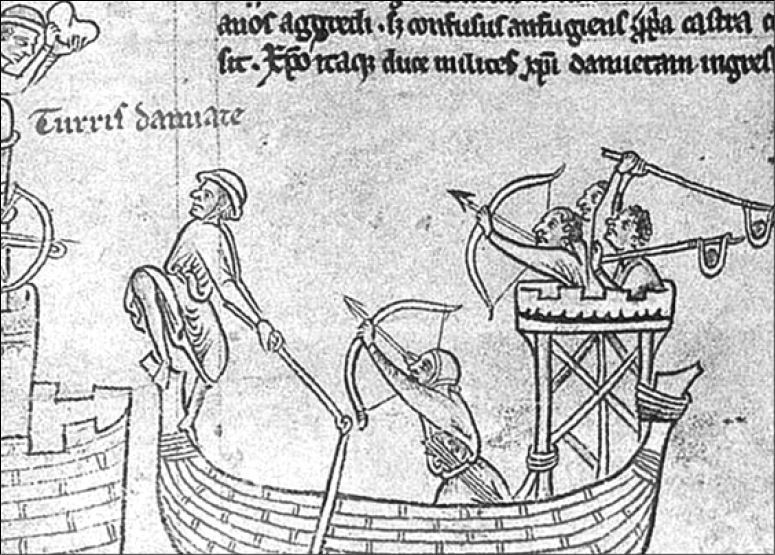 anos aggredi . sꝫ confusus aufugiens ꝓp̃a castra
sit . Xp̄o itaqꝫ duce milites xp̄i damietam ingres
Turris damiate